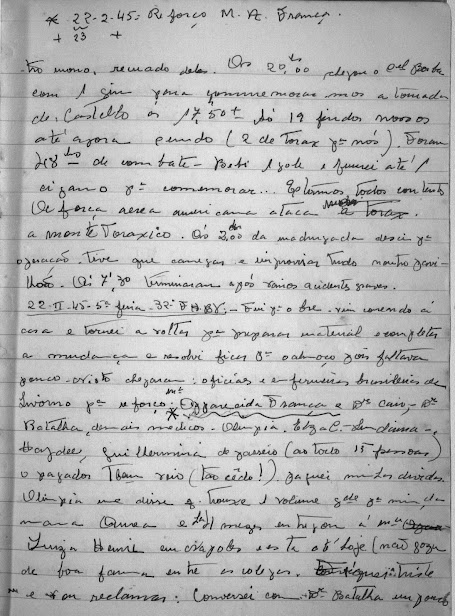 * 22-2-45- Reforço M. A. Franca.
+ 23 +
tro mono, recuado deles. Ás 20,00 hs chegou o Cel
com 1 gin para commemorarmos a tomada
de Castello ás 17,50 Só 19 feridos nossos
até agora (2 de Torax pª nós). Foram
de combate - Bebi 1 gole e fumei até 1
cigarro pª comemorar... Estamos todos contentes
A força aerea americana ataca muito
a monte Toraxico. Ás 2,00 da madrugada desci pª
operação. Tive que começar e improvisar tudo noutro pavi-
lhão. Ás 7,30 terminaram e após varios accidents graves.
22-II-45-5ª feira - 32º Fui pª o vim correndo á
casa e tornei a voltar pª preparar material e completar
a mudança e resolvi ficar pª o almoço pois faltava
pouco - Nisto chegaram: oficiais e enfermeiras brasileiras de
Livorno pª reforço: Mª Apparecida Franca e Drs Caio, Dr
Batalha, demais medicos - Olimpia, Elza C. - Lindaura -
Haydée, Guilhermina de passeio (ao todo 15 pessoas)
o pagador Tbem veio (tão cêdo!). Paguei minhas dividas
Olimpia me disse q. trouxe 1 volume gde pª mim, da
mana e entregou á
Luiza em Napoles e esta até hoje (não goza
de boa fama entre as colegas. Fiquei triste
e vou reclamar. Conversei com Dr Batalha um pouco